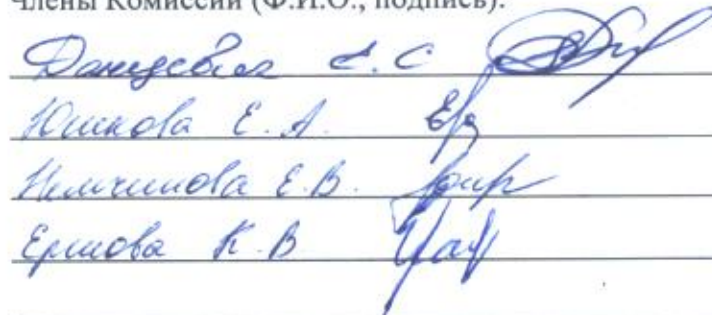 Члены Комиссии (Ф.И.О., подпись):
Данцевич А.С
Юшкова Е.А.
Немчинова Е.В.
Ершова К.В